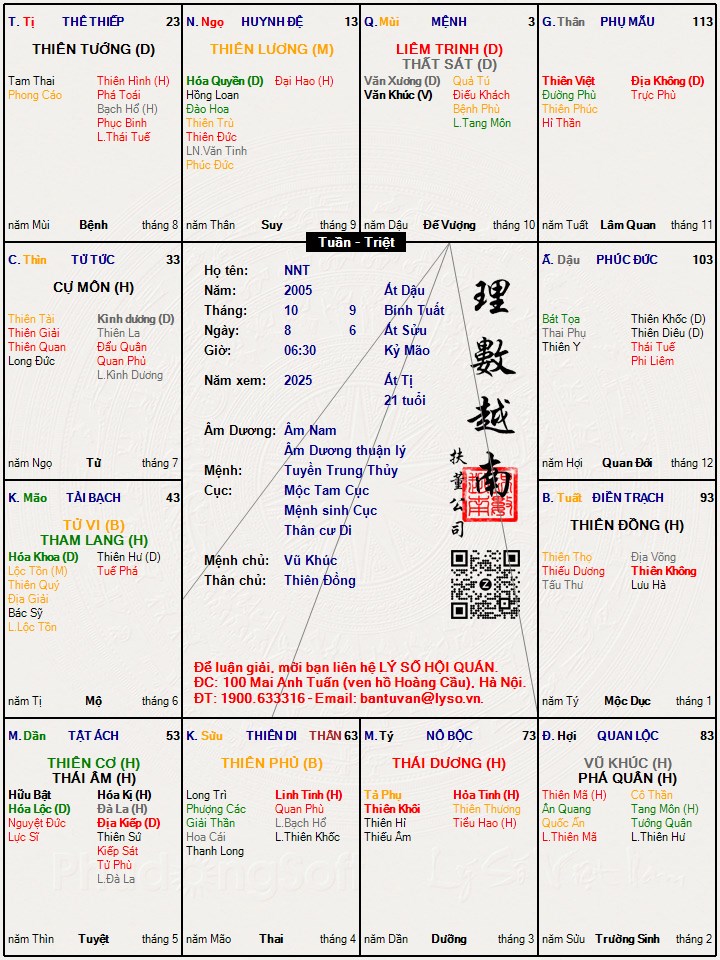 T. Tị THÊ THIẾP 23
THIÊN TƯỚNG (Đ)
Tam Thai Thiên Hình (H)
Phong Cáo Phá Toái
Bạch Hổ (H)
Phục Binh
L.Thái Tuế
năm Mùi Bệnh tháng 8
N. Ngọ HUYNH ĐỆ 13
THIÊN LƯƠNG (M)
Hóa Quyền (D) Đại Hao (H)
Hồng Loan
Đào Hoa
Thiên Trù
Thiên Đức
LN.Văn Tinh
Phúc Đức
năm Thân Suy tháng 9
Q. Mùi MỆNH 3
LIÊM TRINH (Đ)
THẤT SÁT (Đ)
Văn Xương (Đ) Quả Tú
Văn Khúc (V) Điếu Khách
Bệnh Phù
L.Tang Môn
năm Dậu Đế Vượng tháng 10
G. Thân PHỤ MẪU 113
Thiên Việt Địa Không (D)
Đường Phù Trực Phù
Thiên Phúc
Hỉ Thần
năm Tuất Lâm Quan tháng 11
Tuần - Triệt
C. Thìn TỬ TỨC 33
CỰ MÔN (H)
Thiên Tài Kình dương (D)
Thiên Giải Thiên La
Thiên Quan Đẩu Quân
Long Đức Quan Phủ
L.Kình Dương
năm Ngọ Tử tháng 7
Họ tên: NNT
Năm: 2005 Ất Dậu
Tháng: 10 9 Bính Tuất
Ngày: 8 6 Ất Sửu
Giờ: 06:30 Kỷ Mão
Năm xem: 2025 Ất Tị
21 tuổi
Âm Dương: Âm Nam
Âm Dương thuận lý
Mệnh: Tuyền Trung Thủy
Cục: Mộc Tam Cục
Mệnh sinh Cục
Thân cư Di
Mệnh chủ: Vũ Khúc
Thân chủ: Thiên Đồng
理數越南
扶董公司
Để luận giải, mời bạn liên hệ LÝ SỐ HỘI QUÁN.
ĐC: 100 Mai Anh Tuấn (ven hồ Hoàng Cầu), Hà Nội.
ĐT: 1900.633316 - Email: bantuvan@lyso.vn.
Ấ. Dậu PHÚC ĐỨC 103
Bát Tọa Thiên Khốc (D)
Thai Phụ Thiên Diêu (D)
Thiên Y Thái Tuế
Phi Liêm
năm Hợi Quan Đới tháng 12
K. Mão TÀI BẠCH 43
TỬ VI (B)
THAM LANG (H)
Hóa Khoa (D) Thiên Hư (D)
Lộc Tồn (M) Tuế Phá
Thiên Quý
Địa Giải
Bác Sỹ
L.Lộc Tồn
năm Tị Mộ tháng 6
B. Tuất ĐIỀN TRẠCH 93
THIÊN ĐỒNG (H)
Thiên Thọ Địa Võng
Thiếu Dương Thiên Không
Tấu Thư Lưu Hà
năm Tý Mộc Dục tháng 1
M. Dần TẬT ÁCH 53
THIÊN CƠ (H)
THÁI ÂM (H)
Hữu Bật Hóa Kị (H)
Hóa Lộc (D) Đà La (H)
Nguyệt Đức Địa Kiếp (D)
Lực Sĩ Thiên Sứ
Kiếp Sát
Tử Phù
L.Đà La
năm Thìn Tuyệt tháng 5
K. Sửu THIÊN DI THÂN 63
THIÊN PHỦ (B)
Long Trì Linh Tinh (H)
Phượng Các Quan Phù
Giải Thần L.Bạch Hổ
Hoa Cái L.Thiên Khốc
Thanh Long
năm Mão Thai tháng 4
M. Tý NÔ BỘC 73
THÁI DƯƠNG (H)
Tả Phụ Hỏa Tinh (H)
Thiên Khôi Thiên Thương
Thiên Hỉ Tiểu Hao (H)
Thiếu Âm
năm Dần Dưỡng tháng 3
Đ. Hợi QUAN LỘC 83
VŨ KHÚC (H)
PHÁ QUÂN (H)
Thiên Mã (H) Cô Thần
Ân Quang Tang Môn (H)
Quốc Ấn Tướng Quân
L.Thiên Mã L.Thiên Hư
năm Sửu Trường Sinh tháng 2